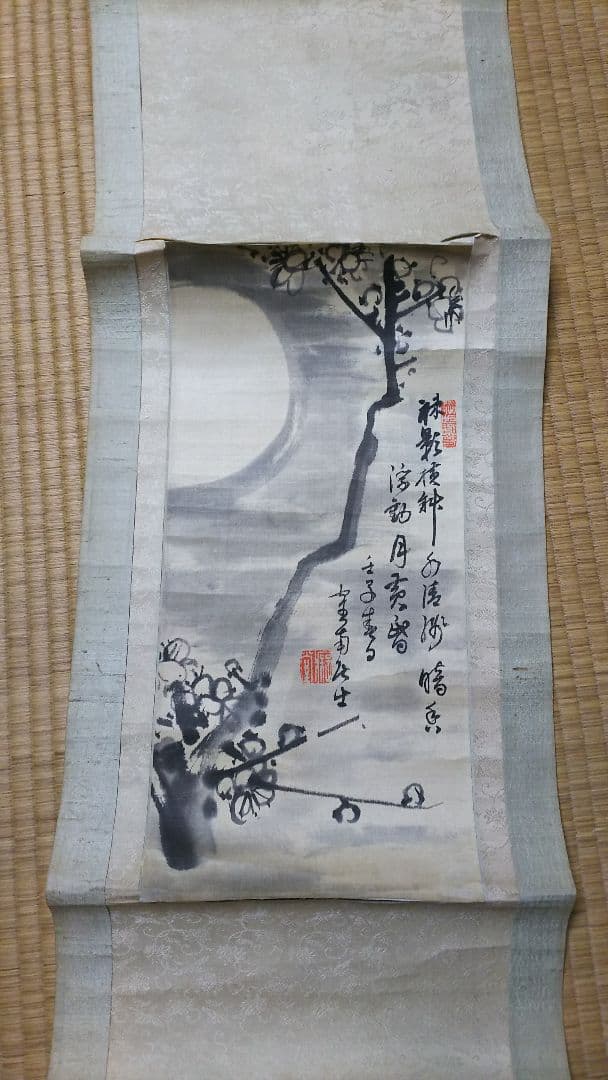 疎影横斜水清浅暗香
浮動月黄昏
壬子春日
南生